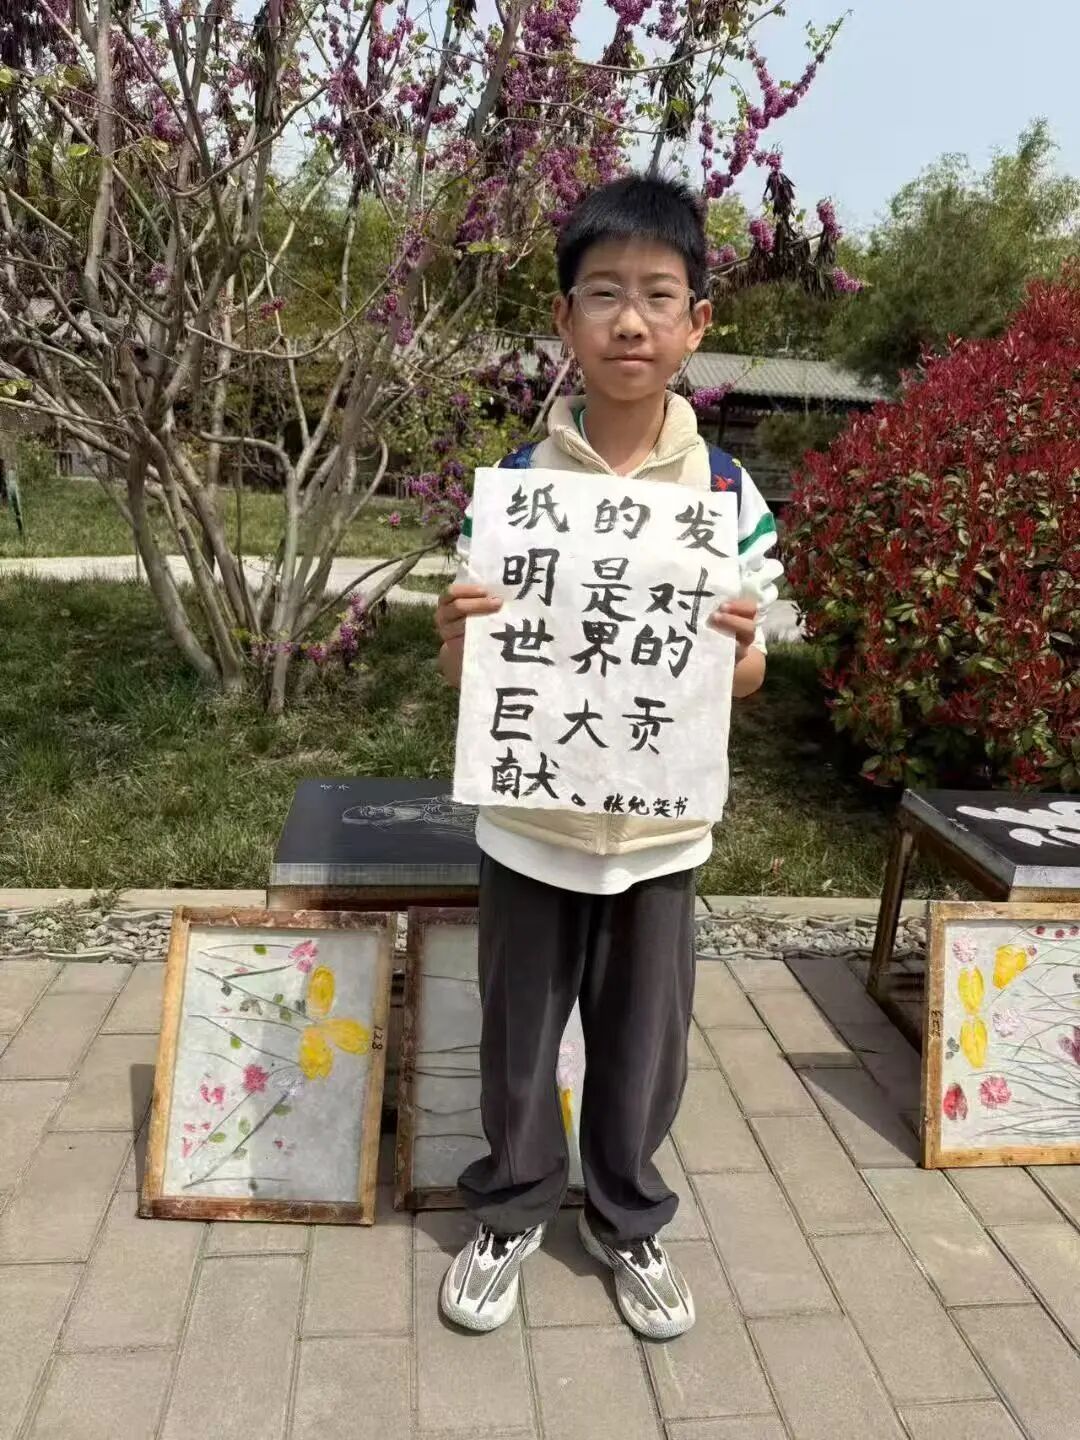 纸的发
明是对
世界的
巨大贡
献。张允笑书
128